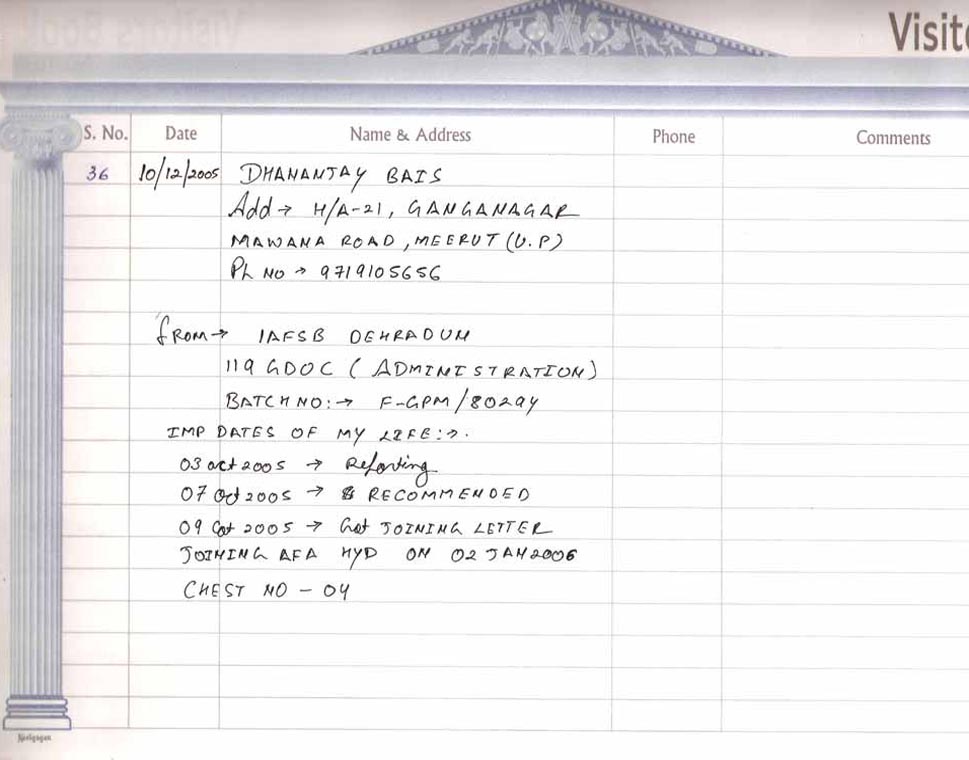 Visit
S. No. Date Name & Address Phone Comments
36 10/12/2005 DHANANJAY BAIS
Add → H/A-21, GANGANAGAR
MAWANA ROAD, MEERUT (U.P)
Ph NO → 9719105656
fROM → IAFSB DEHRADUN
119 GDOC (ADMINISTRATION)
BATCH NO:→ F-GPM/80294
IMP DATES OF MY LIFE:→.
03 oct 2005 → Reporting
07 Oct 2005 → RECOMMENDED
09 Oct 2005 → Got JOINING LETTER
JOINING AFA HYD ON 02 JAN 2006
CHEST NO – 04
Neelgagan